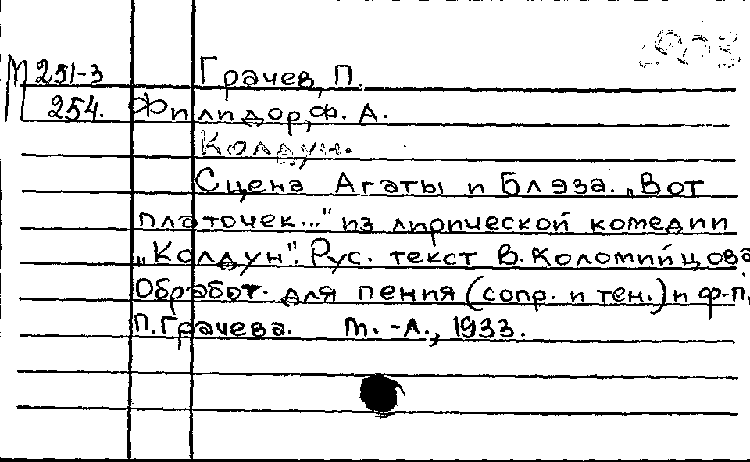 М 251-3 Грачев, П.
254. Филидор, Ф. А.
Колдун.
Сцена Агаты и Блэза. „Вот
платочек..." из лирической комедии
„Колдун". Рус. текст В. Коломийцова
Обработ. для пения (сопр. и тен.) и ф-п.
П. Грачева. М.-Л., 1933.